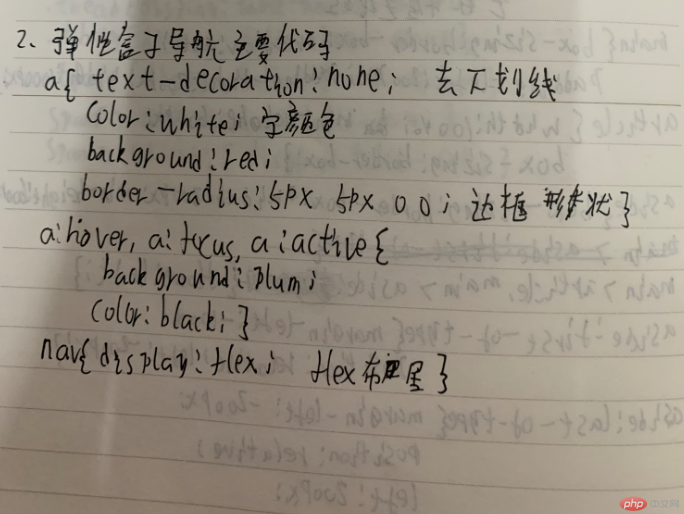 2、弹性盒子导航主要代码
a{ text-decoration:none; 去下划线
color:white; 字颜色
background:red;
border-radius:5px 5px 0 0; 边框形状}
a:hover, a:focus, a:active{
background:plum;
color:black;}
nav{display:flex; flex布局}
php 中文网